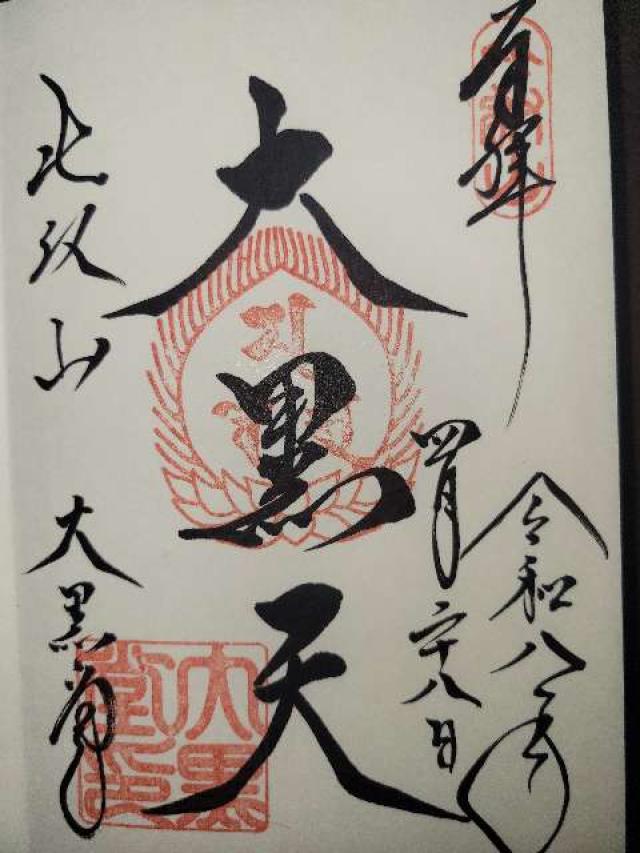 奉拝
令和八年
四月二十八日
大黒天
比叡山
大黒堂
大黒堂印